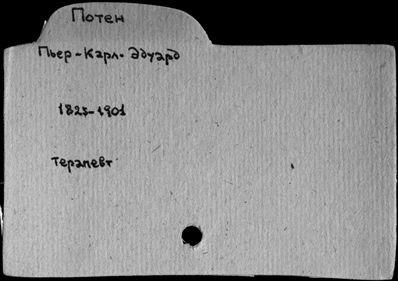 Потен
Пьер-Карл-Эдуард
1825-1901
терапевт